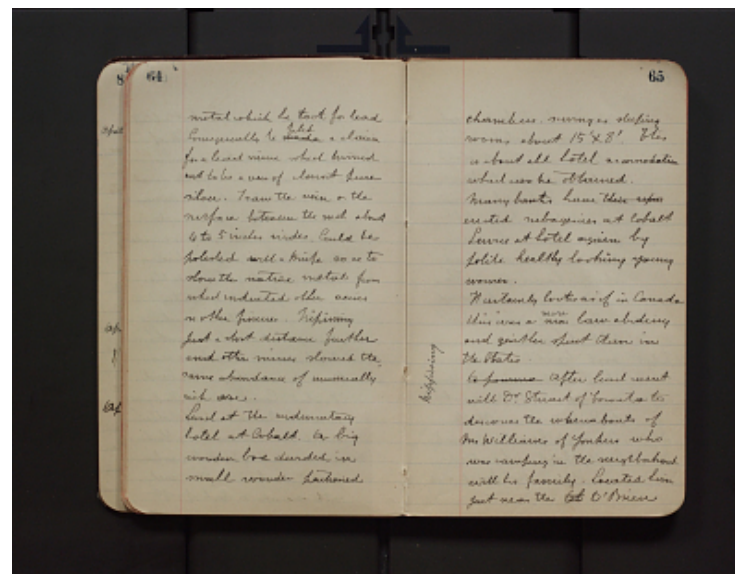 8
64
metal which he took for lead
Consequently he staked a claim
for a lead mine which turned
out to be a vein of almost pure
silver. I saw the vein on the
surface between the rock about
4 to 5 inches wide. Could be
polished with a knife so as to
show the native metal from
which indicated other
in other Nipissing
just a short distance further
and other mines showed the
same abundance of unusually
rich ore.
Lunch at the rudimentary
hotel at Cobalt. A big
wooden box divided in
small wooden partitioned
65
chambers, serving as sleeping
rooms about 15'X8'. This
is about all hotel accomodation
which can be obtained.
Many banks have
erected at Cobalt
Service at hotel is given by
polite healthy looking young
women.
It certainly looks as if in Canada
this was a more law abiding
and gentler spirit than in
the States.
After lunch went
with Dr. Stewart of to
discover the whereabouts of
Mr Williams of Yonkers who
was camping in the neighborhood
with his family. Located him
just near the O'Brien
Nipissing